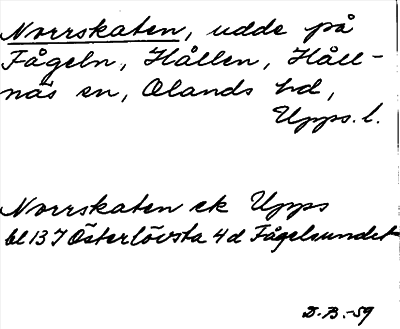 Norrskaten, udde på
Fågeln, Hållen, Håll-
näs sn, Olands hd,
Upps. l.
Norrskaten ek Upps
bl 13 I Österlövsta 4 d Fågelsundet
D.B.-59